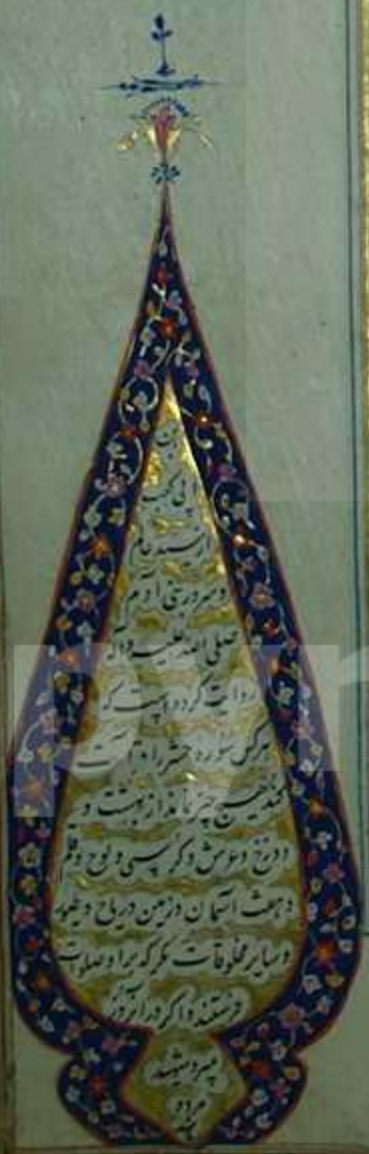 ابن
ابی کعب
از سید عالم
و سرور بنی آدم
صلی الله علیه و آله
روایت کرده است که
هر کس سوره حشر را قرائت
کند هیچ چیز نماند از بهشت و
دوزخ و عرش و کرسی و لوح و قلم
و هفت آسمان و زمین و ریاح و طیور
و سایر مخلوقات مگر که بر او صلوات
فرستند و اگر در آنروز
بمیرد شهید
مرده